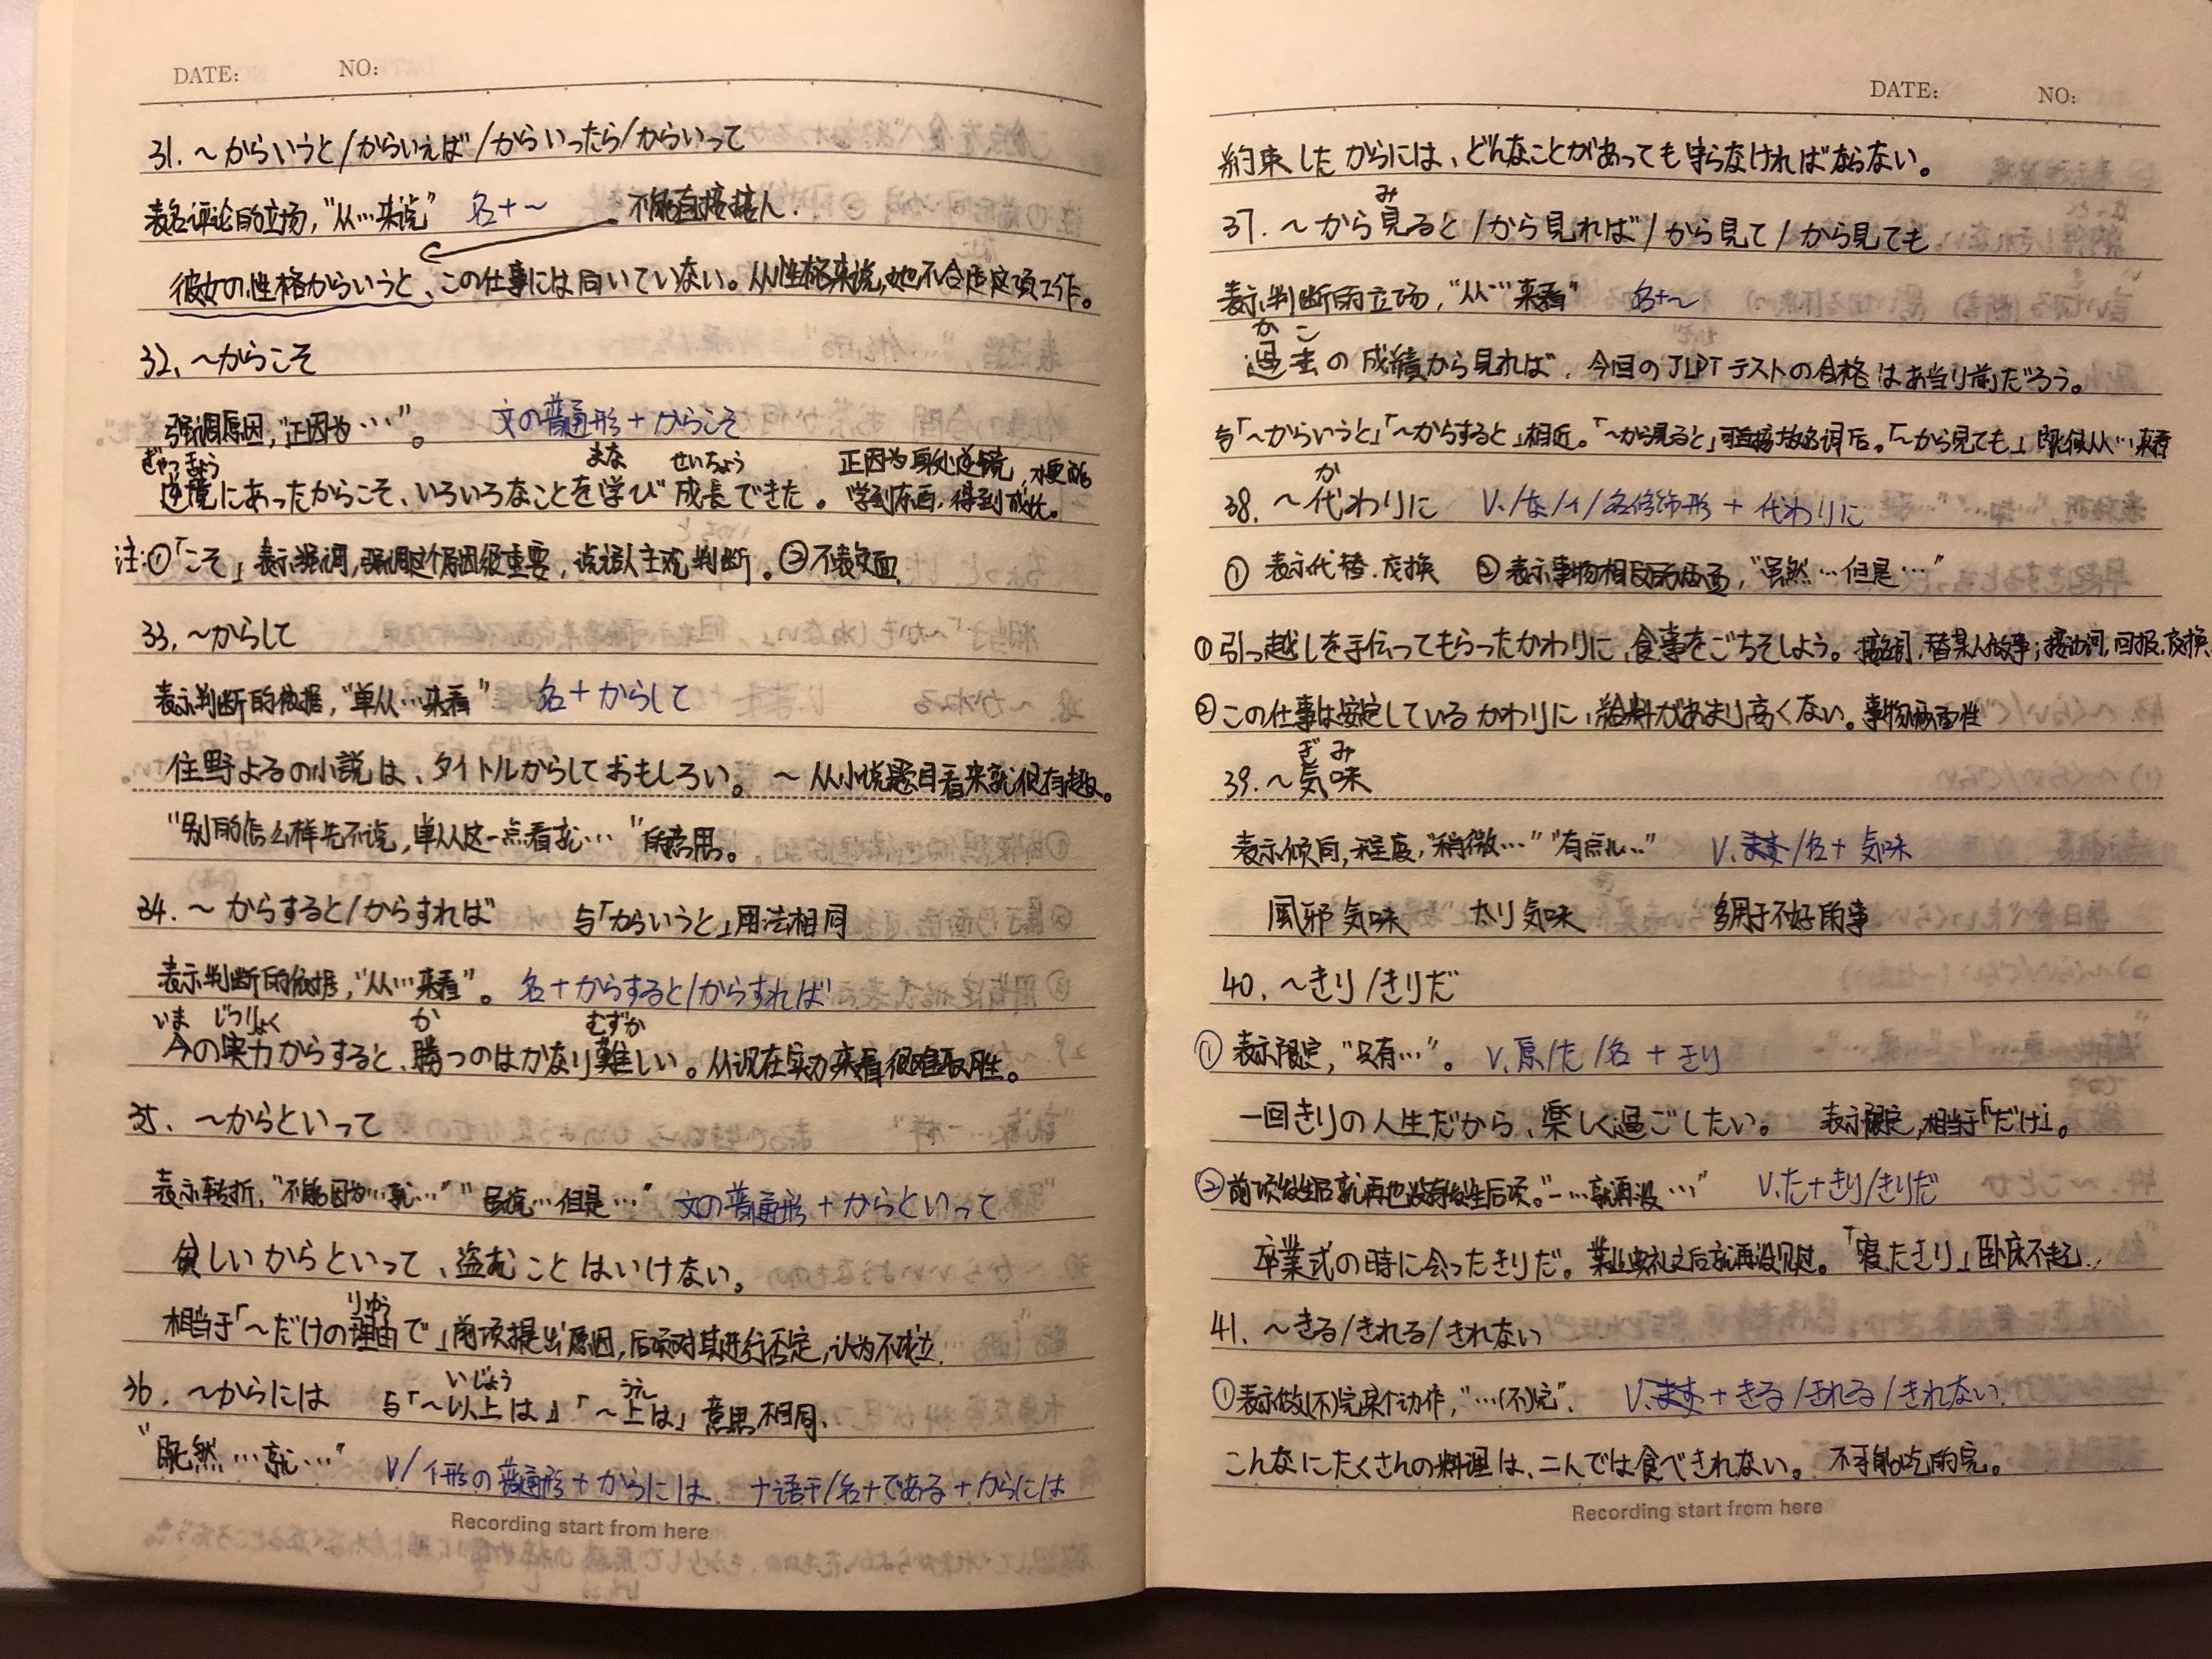 DATE: NO:
31. ～からいうと/からいえば/からいったら/からいって
表名评论的立场，“从…来说” 名+～ 不能直接接人.
彼女の性格からいうと、この仕事には向いていない。从性格来说，她不合适这项工作。
32、～からこそ
强调原因，“正因为…”。 文の普通形+からこそ
ぎゃっきょう まな せいちょう 正因为身处逆镜，才更能
逆境にあったからこそ、いろいろなことを学び成長できた。学到东西，得到成长。
注:①「こそ」表示强调，强调这个原因很重要，说话人主观判断。②不表负面.
33、～からして
表示判断的依据，“单从…来看” 名+からして
住野よるの小説は、タイトルからしておもしろい。～从小说题目看来就很有趣。
“别的怎么样先不说，单从这一点看就…”的意思。
34. ～からすると/からすれば 与「からいうと」用法相同
表示判断的依据，“从…来看”。名+からすると/からすれば
いま じつりょく か むずか
今の実力からすると、勝つのはかなり難しい。从现在实力来看很难取胜。
35、～からといって
表示转折，“不能因为…就…”“虽说…但是…” 文の普通形+からといって
貧しいからといって、盗むことはいけない。
りゆう
相当于「～だけの理由で」前项提出原因，后项对其进行否定，认为不成立.
いじょう うえ
36. ～からには 与「～以上は」「～上は」意思相同、
“既然…就…” V/イ形の普通形+からには ナ语干/名+である+からには
Recording start from here
DATE: NO:
約束したからには、どんなことがあっても守らなければならない。
み
37. ～から見ると/から見れば/から見て/から見ても
表示判断的立场，“从…来看” 名+～
かこ
過去の成績から見れば、今回のJLPTテストの合格はあ当り前だろう。
与「～からいうと」「～からすると」相近。「～から見ると」可直接放名词后。「～から見ても」即使从…来看
か
38. ～代わりに V./な/イ/名修飾形+代わりに
① 表示代替.交换 ②表示事物相反的两面，“虽然…但是…”
①引っ越しを手伝ってもらったかわりに、食事をごちそしよう。接名词，替某人做事；接动词，回报，交换.
②この仕事は安定しているかわりに、給料があまり高くない。事物两面性
ぎみ
39. ～気味
表示倾向，程度，“稍微…”“有点儿…” V.ます/名+気味
風邪気味 太り気味 多用于不好的事
40. ～きり/きりだ
① 表示限定，“只有…”。 V.原/た/名+きり
一回きりの人生だから、楽しく過ごしたい。 表示限定，相当于「だけ」。
②前项发生后就再也没有发生后项。“一…就再没…” V.た+きり/きりだ
卒業式の時に会ったきりだ。毕业典礼之后就再没见过。「寝たきり」卧床不起..
41、～きる/きれる/きれない
①表示做(不)完某个动作，“…(不)完”. V.ます+きる/きれる/きれない.
こんなにたくさんの料理は、二人では食べきれない。 不可能吃的完。
Recording start from here